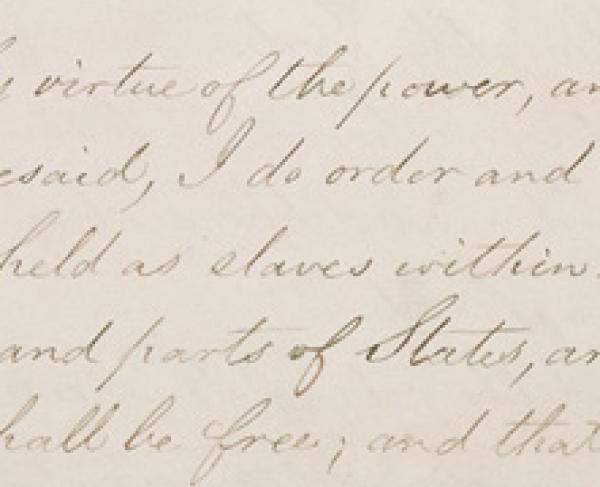 y virtue of the power, an
esaid, I do order and
held as slaves within
and parts of States, an
hall be free; and that